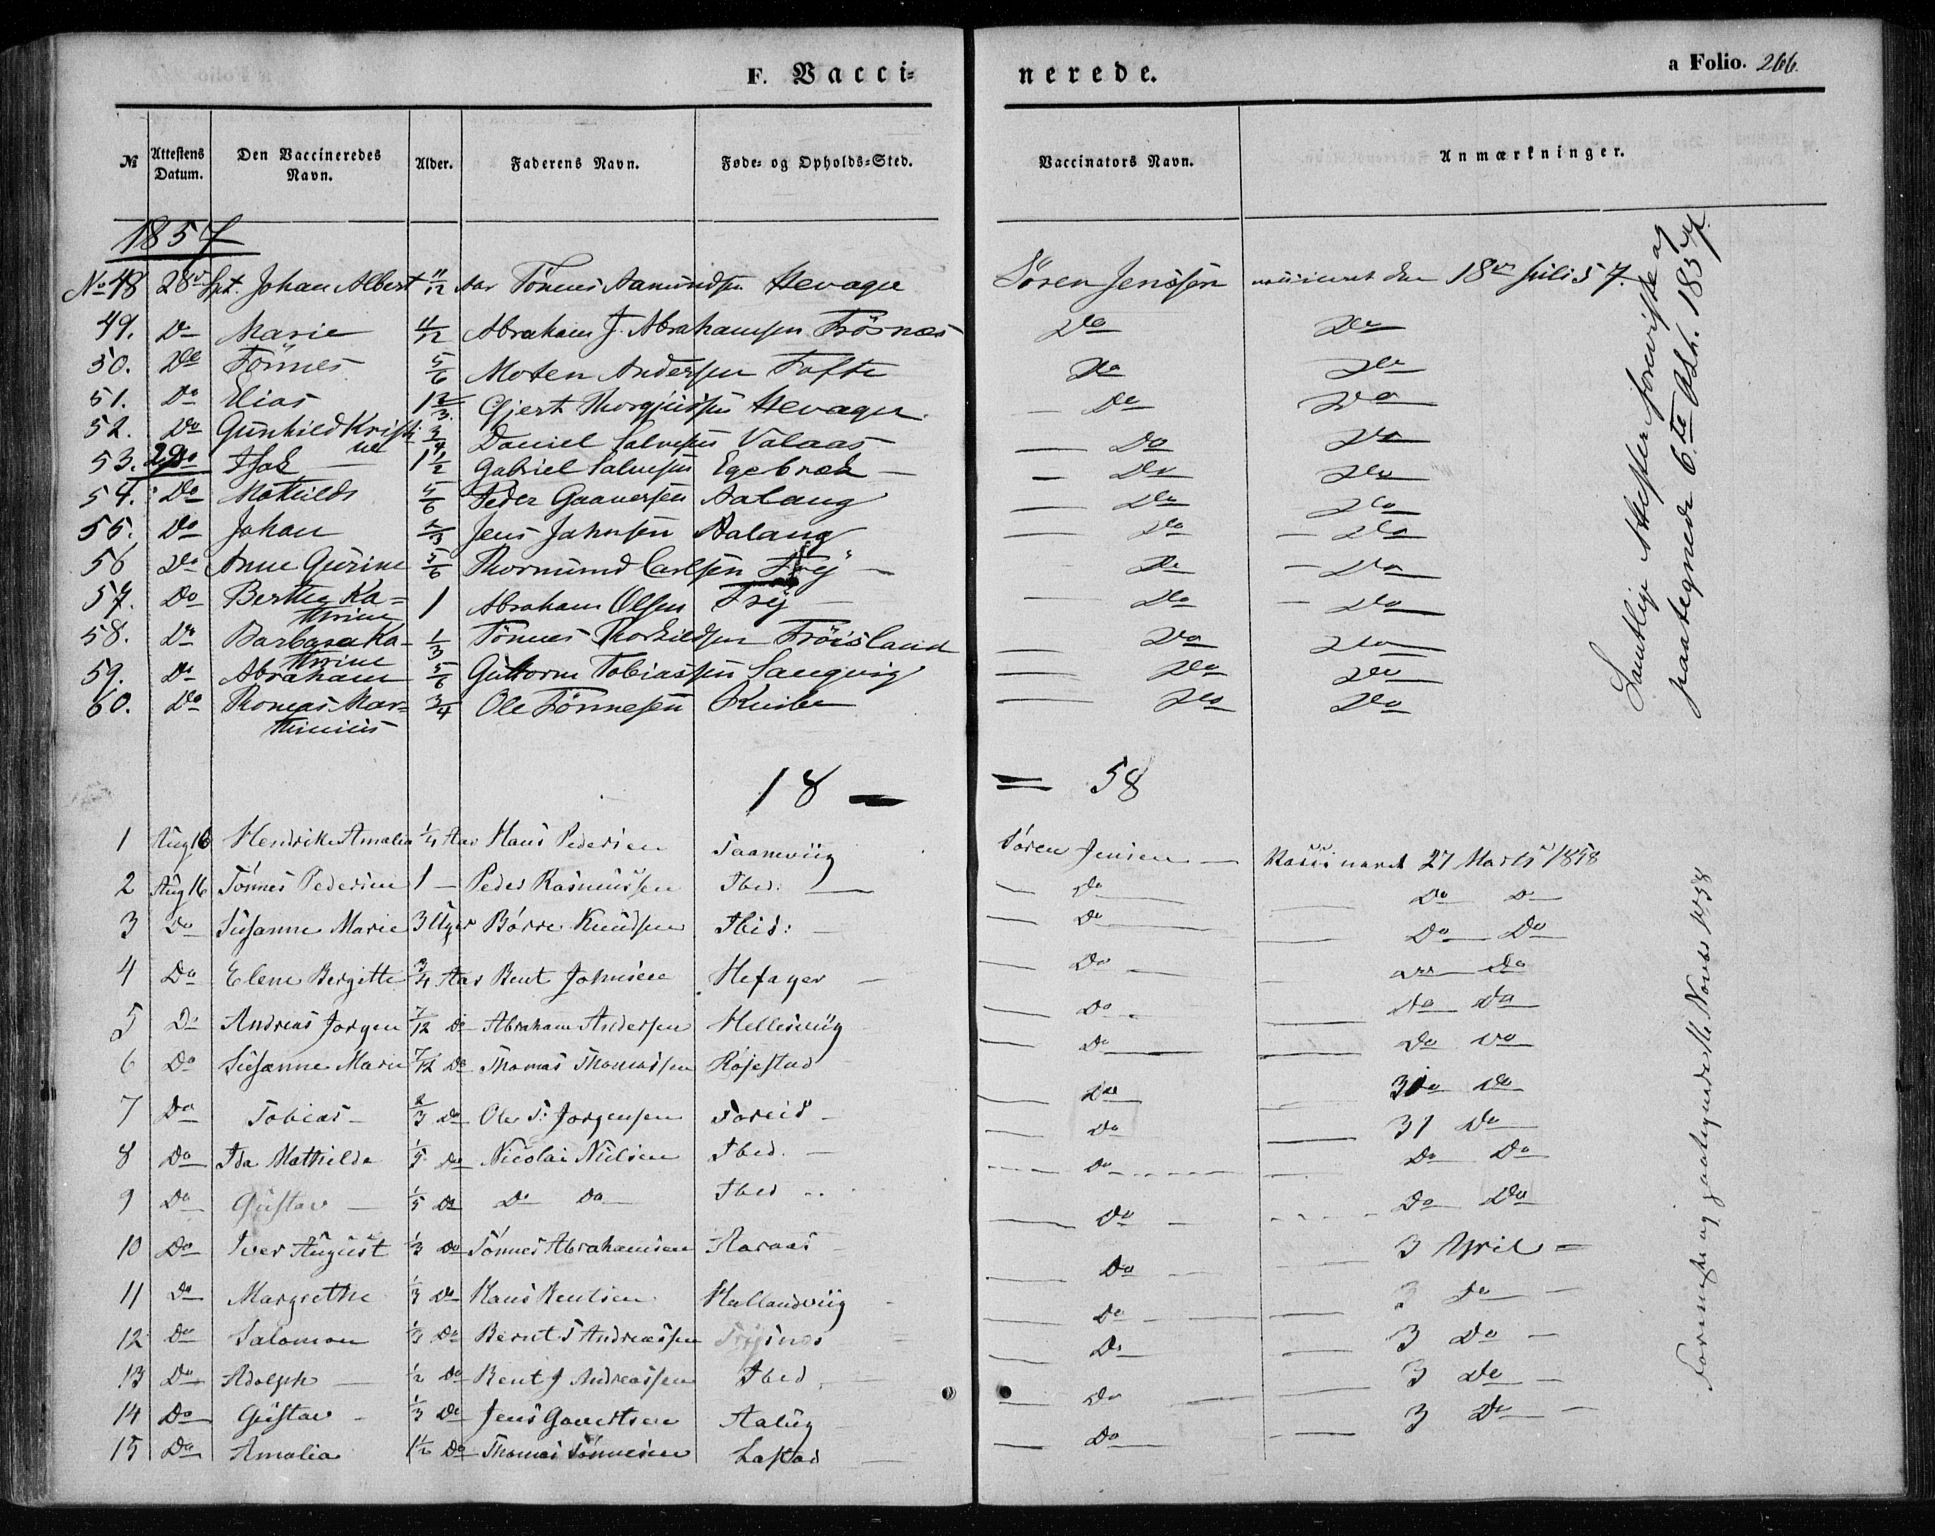 F. Vacci=
nerede.
a Folio. 266.
№ Attestens Datum. Den Vaccineredes Navn. Alder. Faderens Navn. Føde- og Opholds-Sted. Vaccinators Navn. Anmærkninger.
1857
No 48 28de Spt. Johan Albert 11/12 Aar Tönnes Aamundsen Hevager Sören Jenssen vaccineret den 18de Juli 57.
49. Do Marie Abraham J. Abrahamsen Trösnæs Do Do
50. Do Tönnes 5/6 Moten Andersen Tofte Do Do
51. Do Elias 1 2/3 Gjert Thorgjussen Hevager. Do Do
52. Do Gunhild Kristine 3/4 Daniel Salvesen Valaas Do Do
53. 29 Do Isak 1 1/2 Gabriel Salvesen Egebræk Do Do
54. Do Mathilde 5/6 Peder Gaaversen Aalaug Do Do
55. Do Johan 2/3 Jens Jahnsen Aalaug Do Do
56 Do Anne Gurine 5/6 Thormund Carlsen Do Do
57. Do Berthe Ka=thrine 1 Abraham Olsen Do Do
58. Do Barbara Ka=thrine 1/3 Tönnes Thorkildsen Tröisland Do Do
59. Do Abraham 5/6 Guttorm Tobiassen Langvig Do Do
60. Do Thomas Mar=thinius 3/4 Ole Tönnesen Do Do
Samtlige Attester foreviste og
paategnede 6.te 1857.
18 — = 58
1 Aug 16 Hendrikke Amalia 1/4 Aar Hans Pedersen Sören Jensen Vaccineret 27 Marts 1858
2 Aug 16 Tönnes Pedersen 1 — Peder Rasmussen Ibed: Do Do Do
3 Do Susanne Marie 3 Uger Börre Knudsen Ibid: Do Do Do
4 Do Elene Bergitte 3/4 Aar Bent Johnsen Hefager Do Do Do
5 Do Andreas Jorgen 7/12 Do Abraham Andersen Hellesviig Do Do Do
6 Do Susanne Marie 7/12 Do Thomas Thomassen Rojestad Do Do Do
7 Do Tobias 2/3 Do Ole T: Jorgensen Do 31 Do
8 Do Ida Mathilde 1/5 Do Nicolai Nielsen Ibed. Do 31 Do
9 Do Gustav 1/5 Do Do Do Ibed Do Do Do
10 Do Iver August 1/3 Do Tönnes Abrahamsen Aaraas Do 3 April
11 Do Margrethe 1/3 Do Hans Bentsen Hallandviig Do 3 Do
12 Do Salomon 1/3 Do Bernt T Andreassen Do 3 Do
13 Do Adolph 1/2 Do Bent J Andreassen Ibed Do 3 Do
14 Do Gustav 1/3 Do Jens Do 3 Do
15 Do Amalia 1 1/2 Do Thomas Tönnesen Lastad Do
Foreviste og paategnede 1858